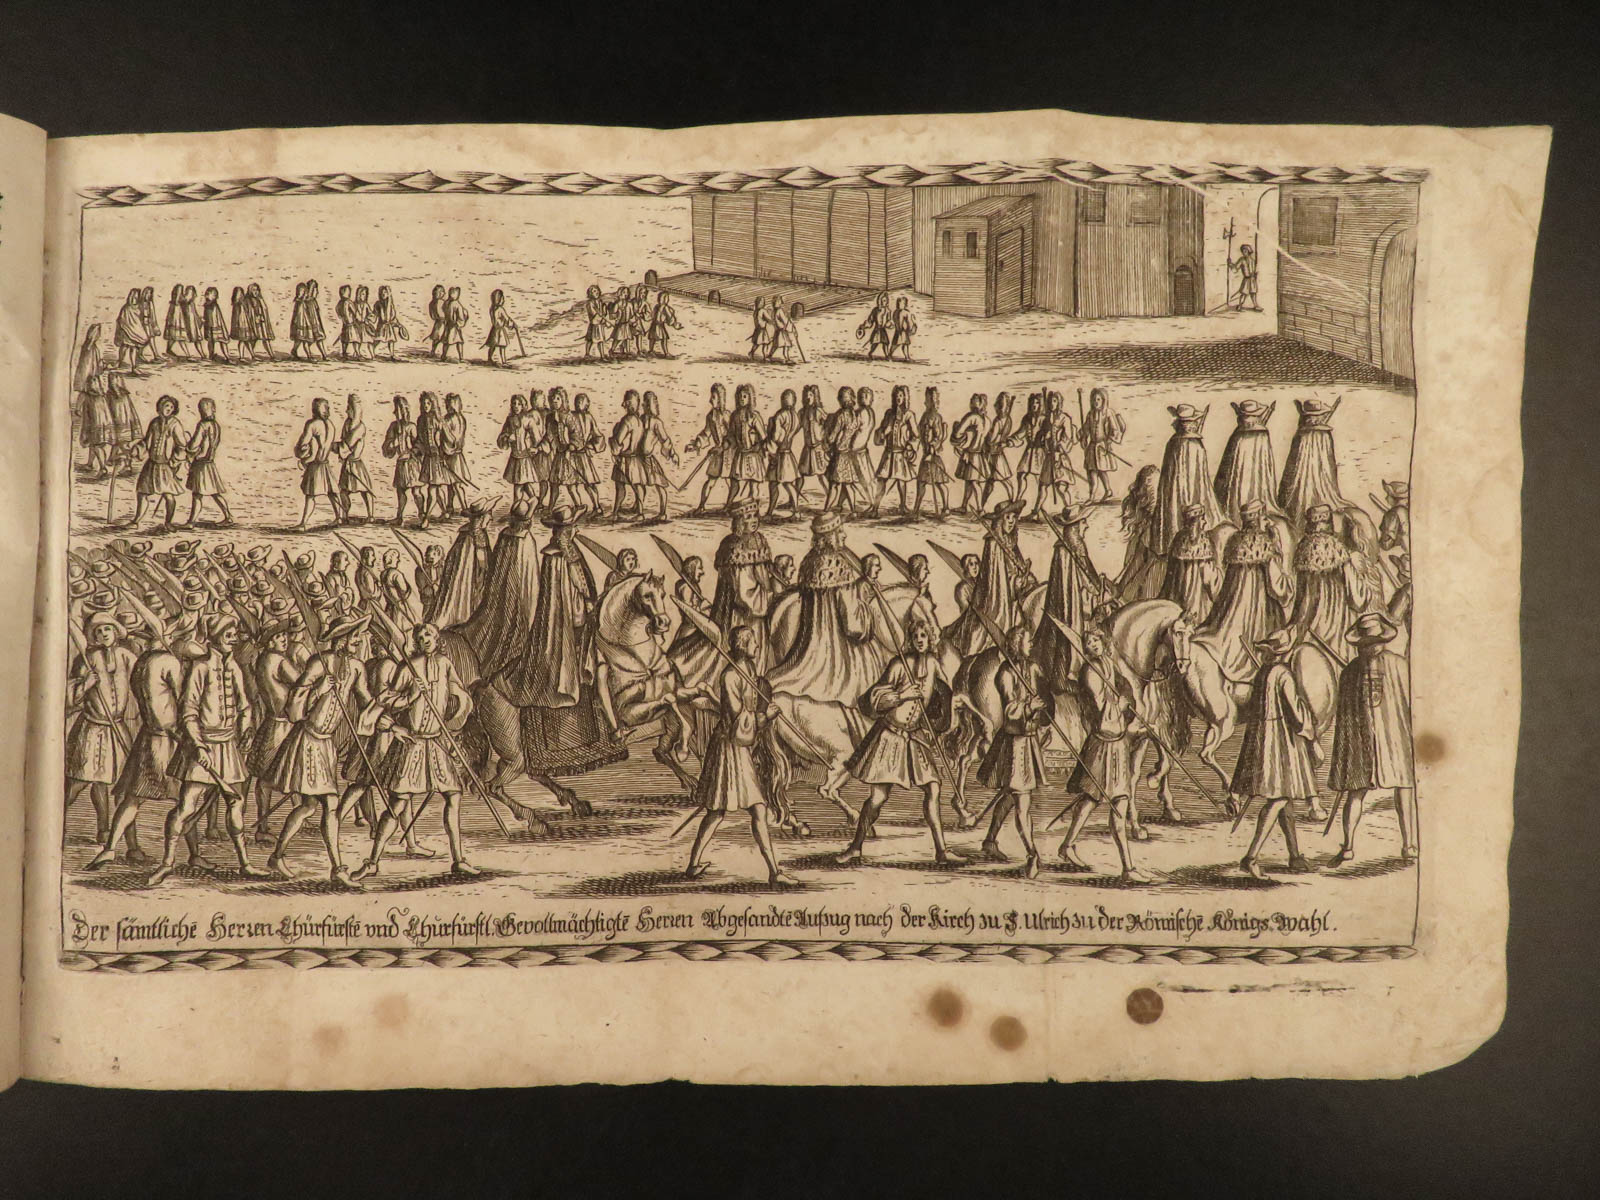 Der sämtlichē Herren Chürfürstē vnd Churfürstl. Gevollmächtigtē Herren Abgesandtē Aufzug nach der Kirch zu S. Ulrich zu der Römischē Königs Wahl.